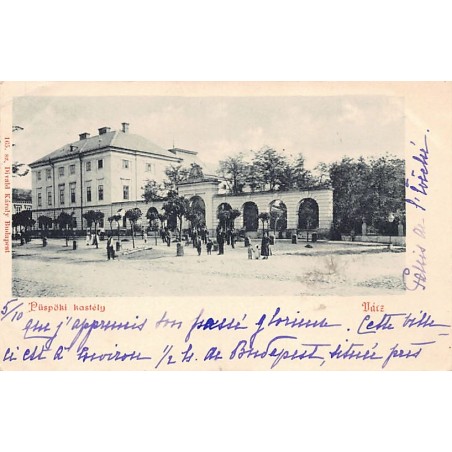 163. sz. Divald Károly Budapest
Püspöki kastély
Vácz
5/10
que j'apprenis ton passé glorieux. Cette ville-
ci est à environ 1/2 h. de Budapest, située près